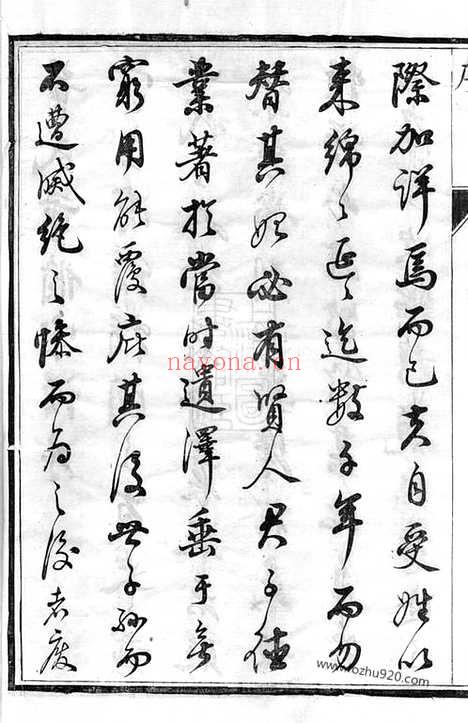 際加詳焉而已夫自受姓以
來綿〻延〻迄數千年而勿
替其始必有賢人君子德
業著於當時遺澤垂于無
窮用能覆庇其後世子孫而
不遭滅絕之慘而為之後者
nayona.cn
www.rozhu920.com
序